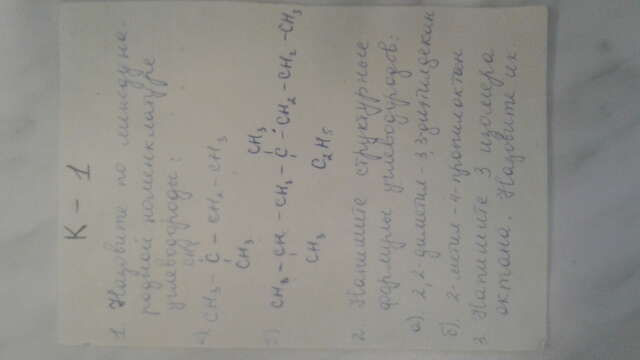 К - 1
1. Назовите по междуна-
родной номенклатуре
углеводороды:
а) CH3
CH3 - C - CH2 - CH3
CH3
CH3
б) CH3 - CH - CH2 - C - CH2 - CH2 - CH3
CH3 C2H5
2. Напишите структурные
формулы углеводородов:
а). 2,2-диметил-3,3-диэтилдекан
б). 2-метил-4-пропилоктан
3. Напишите 3 изомера
октана. Назовите их.